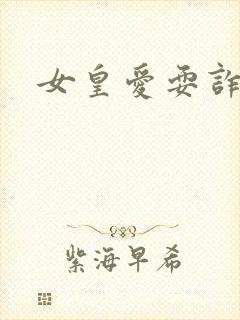 女皇愛耍詐
紫海早希